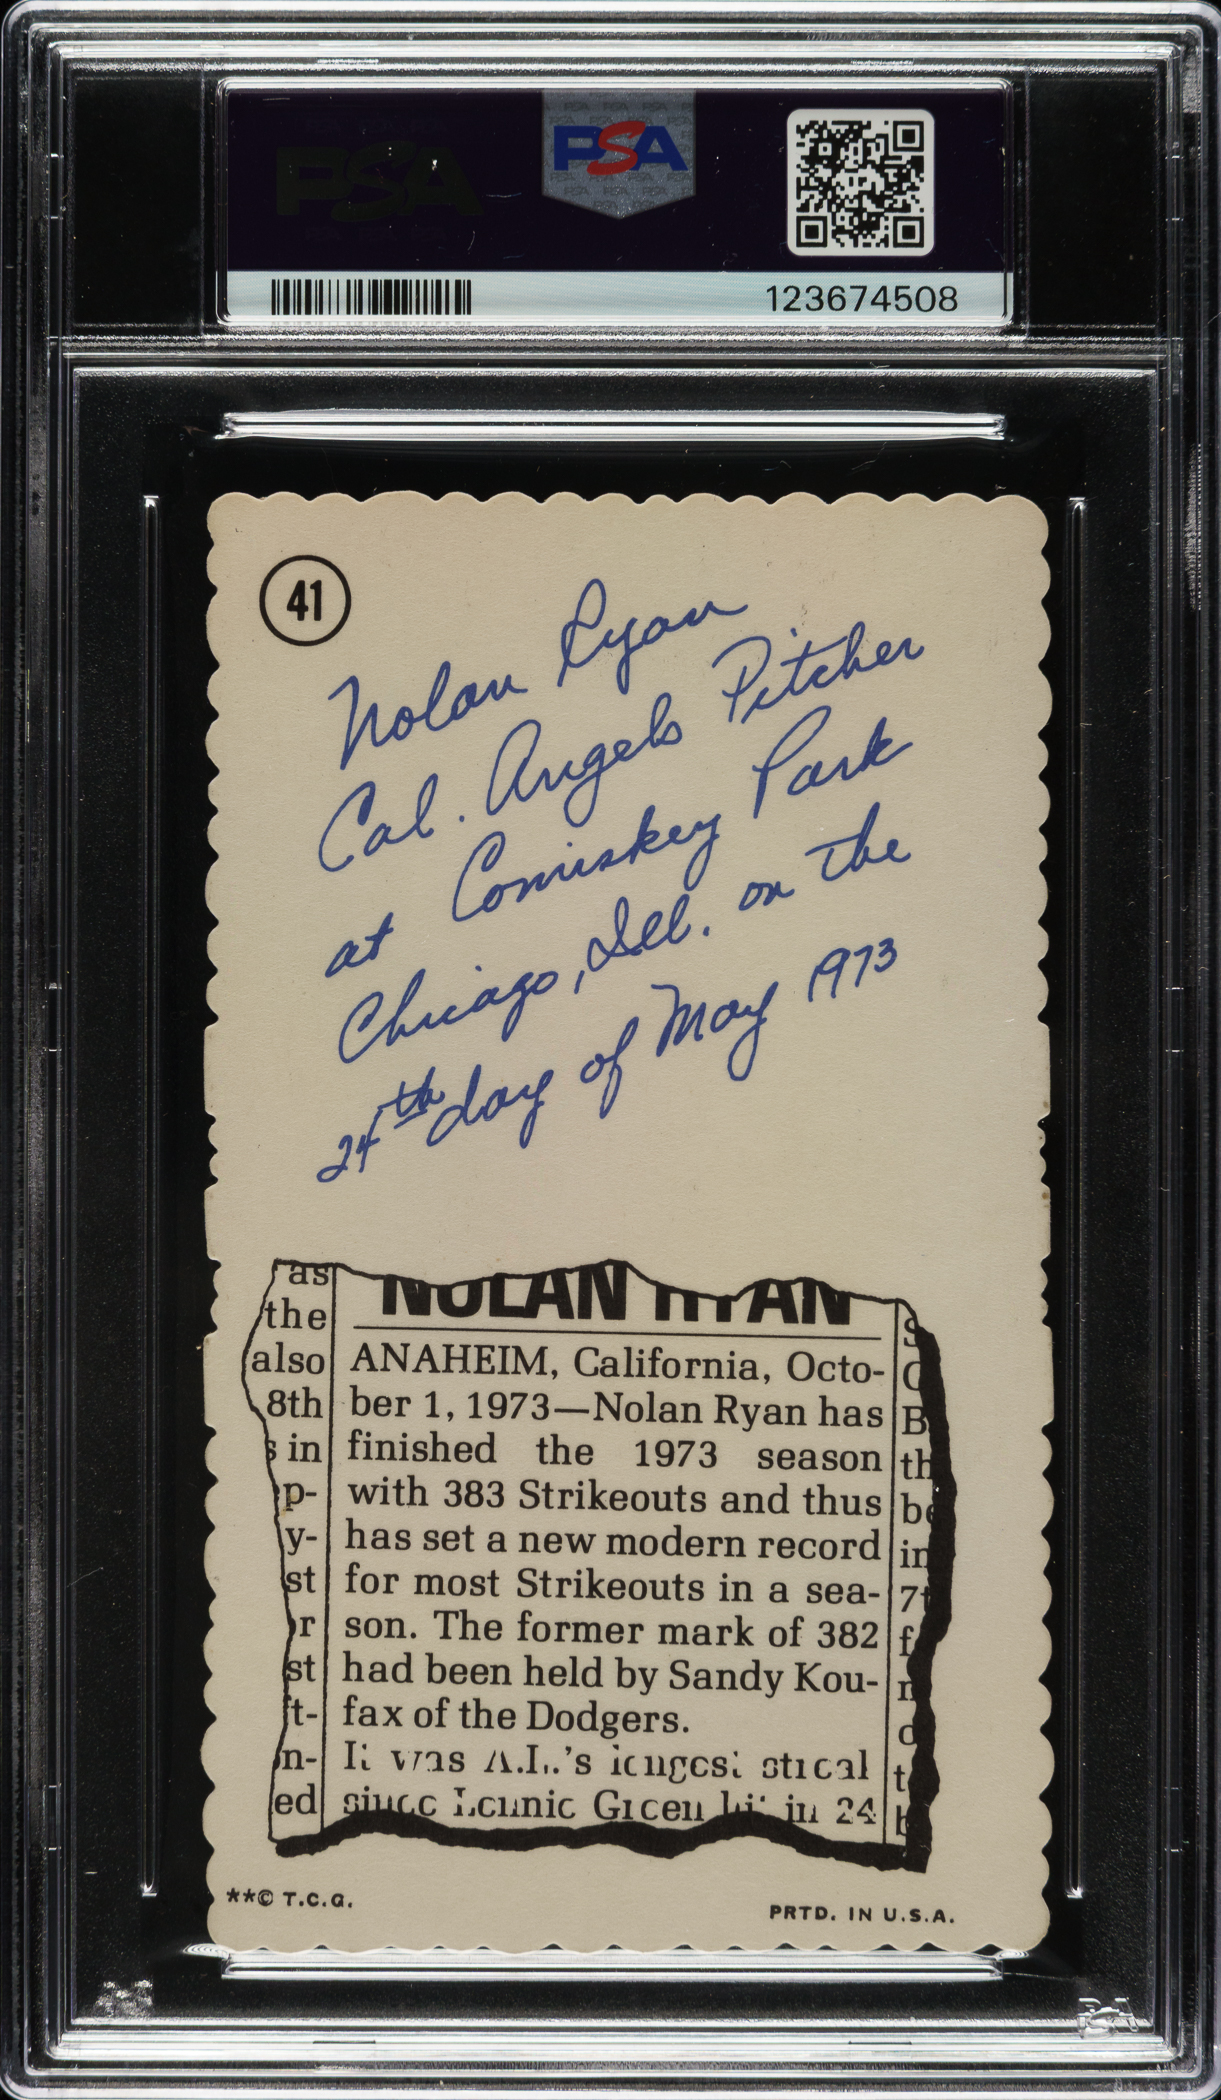 PSA
PSA
123674508
41
Nolan Ryan
Cal. Angels Pitcher
at Comiskey Park
Chicago, Ill. on the
24th day of May 1973
as
the
also
8th
s in
p-
y-
st
or
st
ft-
n-
ed
NOLAN RYAN
ANAHEIM, California, Octo-
ber 1, 1973—Nolan Ryan has
finished the 1973 season
with 383 Strikeouts and thus
has set a new modern record
for most Strikeouts in a sea-
son. The former mark of 382
had been held by Sandy Kou-
fax of the Dodgers.
It was A.L.'s longest
since Lennie Green hit in 24
S
C
B
th
be
in
7t
f
t
b
**© T.C.G.
PRTD. IN U.S.A.